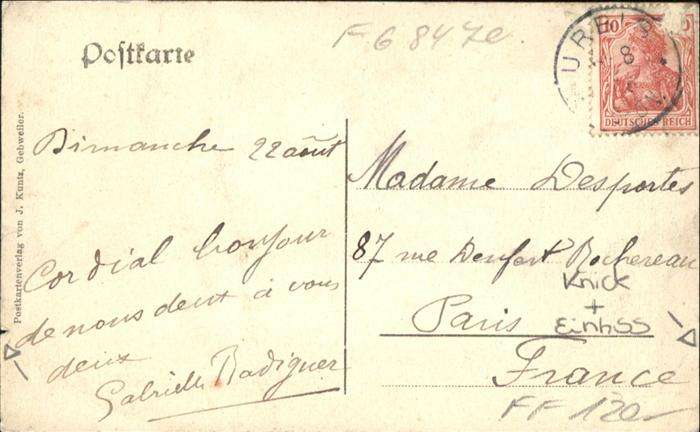 Postkarte
F 6 847e
10
8
DEUTSCHES REICH
Postkartenverlag von J. Kuntz, Gebweiler.
Dimanche 22 août
Cordial bonjour
de nous deux à vous
deux
Gabrielle Badiguer
Madame Desportes
87 rue Denfert Rochereau
Paris
France
Knick
+
Einriss
FF 12e